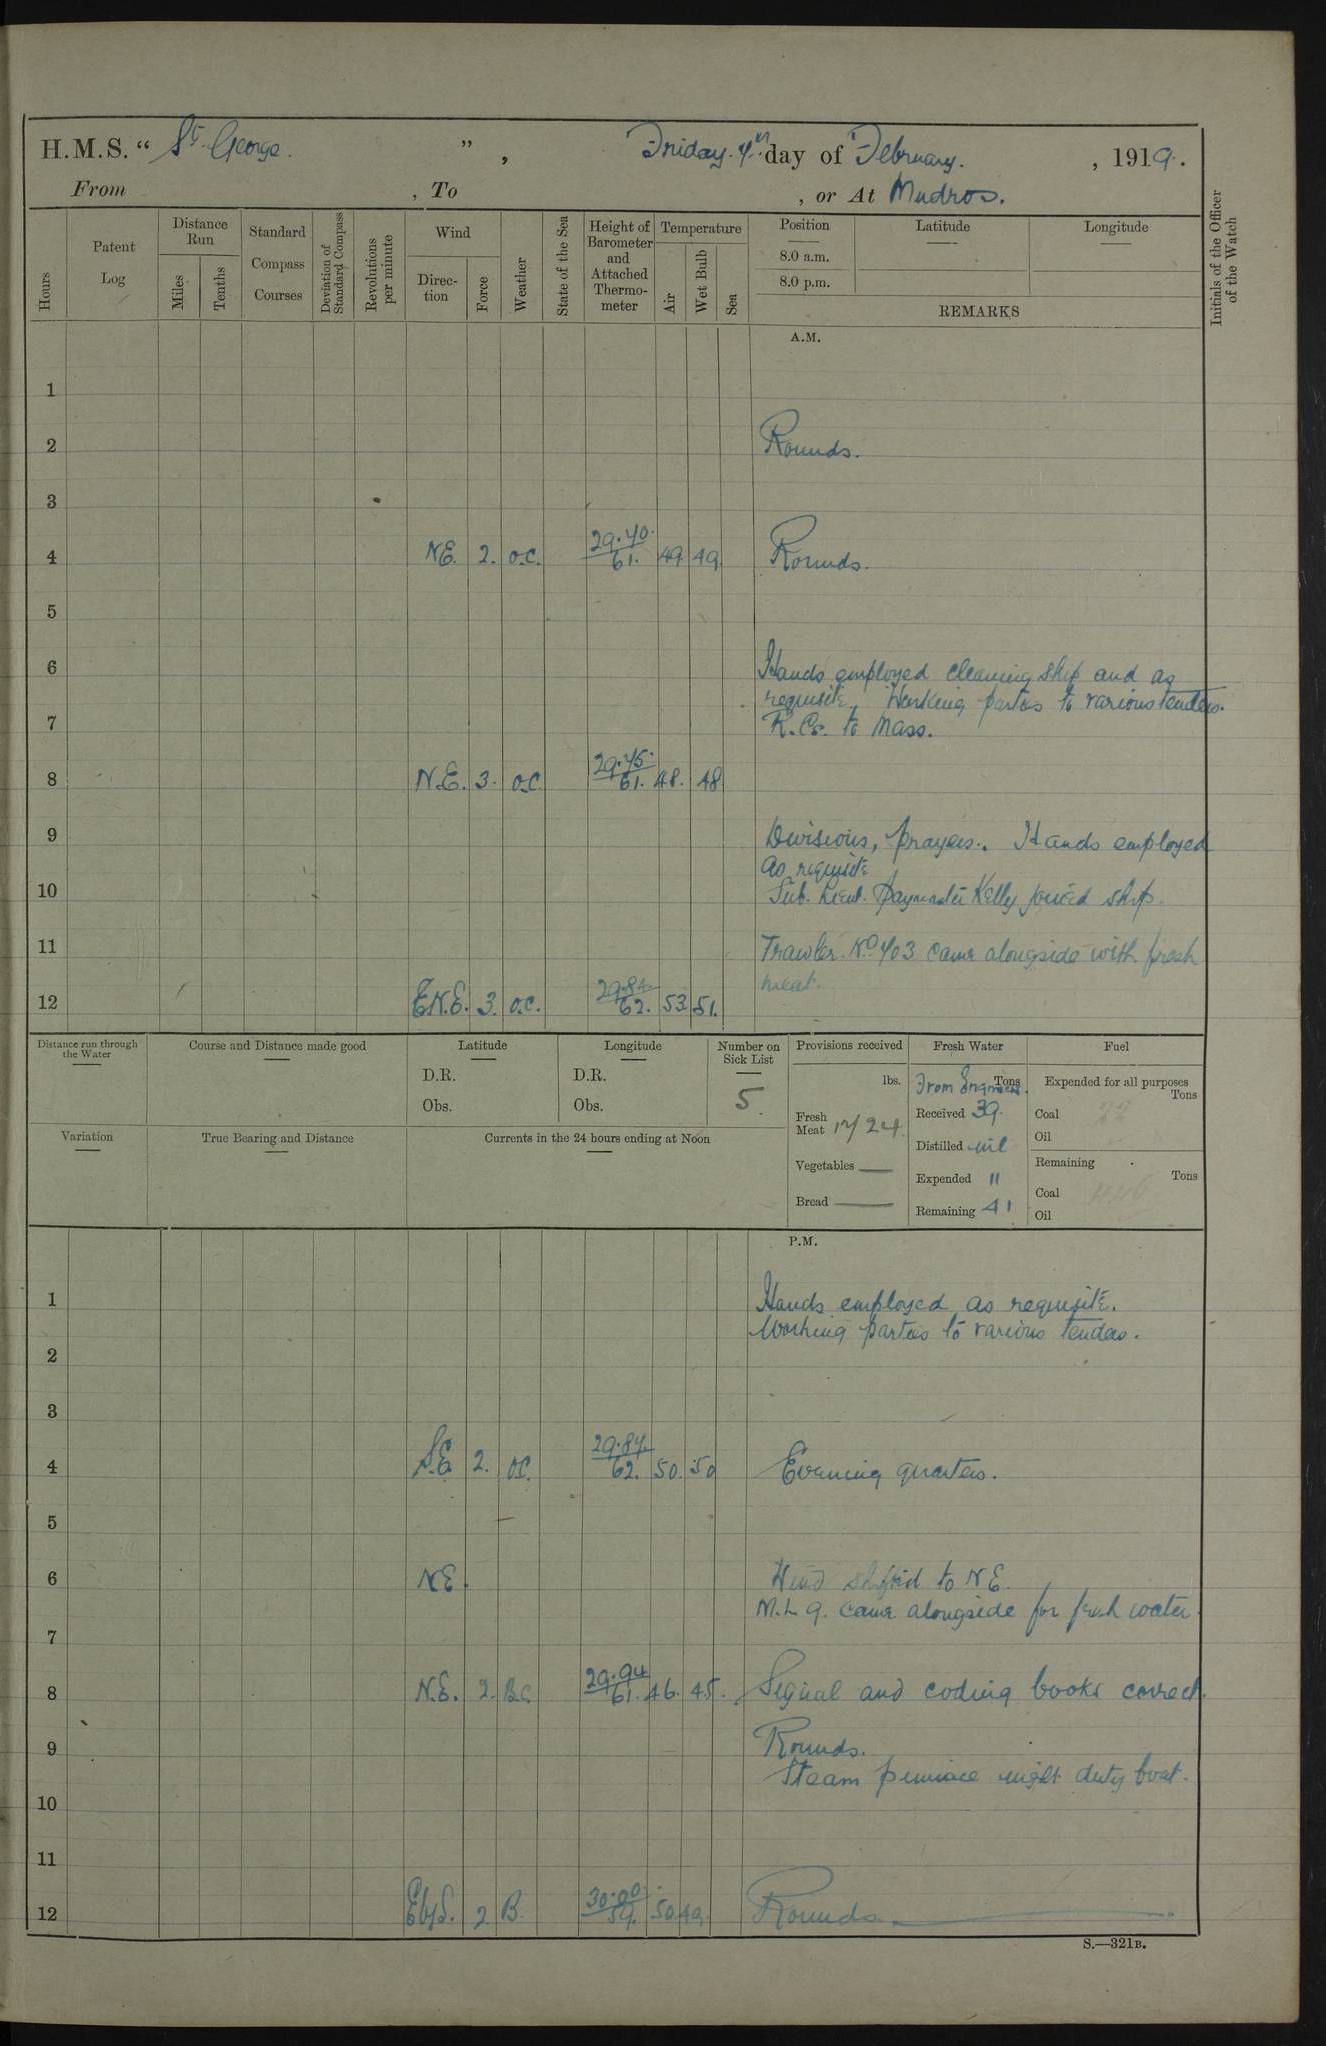 H.M.S. “ St. George. ” , Friday. 7th day of February. , 1919.
From , To , or At Mudros.
Hours
Patent Log
Distance Run
Miles
Tenths
Standard Compass Courses
Deviation of Standard Compass
Revolutions per minute
Wind
Direc-tion
Force
Weather
State of the Sea
Height of Barometer and Attached Thermo-meter
Temperature
Air
Wet Bulb
Sea
Position
8.0 a.m.
8.0 p.m.
Latitude
Longitude
REMARKS
Initials of the Officer of the Watch
A.M.
1
2 Rounds.
3
4 N.E. 2. o.c. 29.70. 61. 49. 49. Rounds.
5
6 Hands employed cleaning ship and as
requisite. Working parties to various tenders.
7 R.Cs. to Mass.
8 N.E. 3. o.c. 29.75. 61. 48. 48
9 Divisions, prayers. Hands employed
as requisite
10 Sub. Lieut. Paymaster Kelly joined ship.
11 Trawler No 703 came alongside with fresh
meat.
12 E.N.E. 3. o.c. 62. 53. 51.
Distance run through the Water
Course and Distance made good
Latitude
D.R.
Obs.
Longitude
D.R.
Obs.
Number on Sick List
5.
Provisions received
lbs.
Fresh Meat 1724
Vegetables
Bread
Fresh Water
Tons
Received 39.
Distilled nil
Expended "
Remaining 41
Fuel
Expended for all purposes
Tons
Coal
Oil
Remaining
Tons
Coal
Oil
Variation
True Bearing and Distance
Currents in the 24 hours ending at Noon
P.M.
1 Hands employed as requisite.
Working parties to various tenders.
2
3
4 S.E. 2. o.c. 29.87. 62. 50. 50 Evening quarters.
5
6 N.E. Wind shifted to N E.
M.L 9. came alongside for fresh water
7
8 N.E. 2. B.C. 29.94 61. 46. 45. Signal and coding books correct.
9 Rounds.
Steam pinnace night duty boat.
10
11
12 EbyS. 2 B. 30.00 59. 50. 49. Rounds
S.—321B.